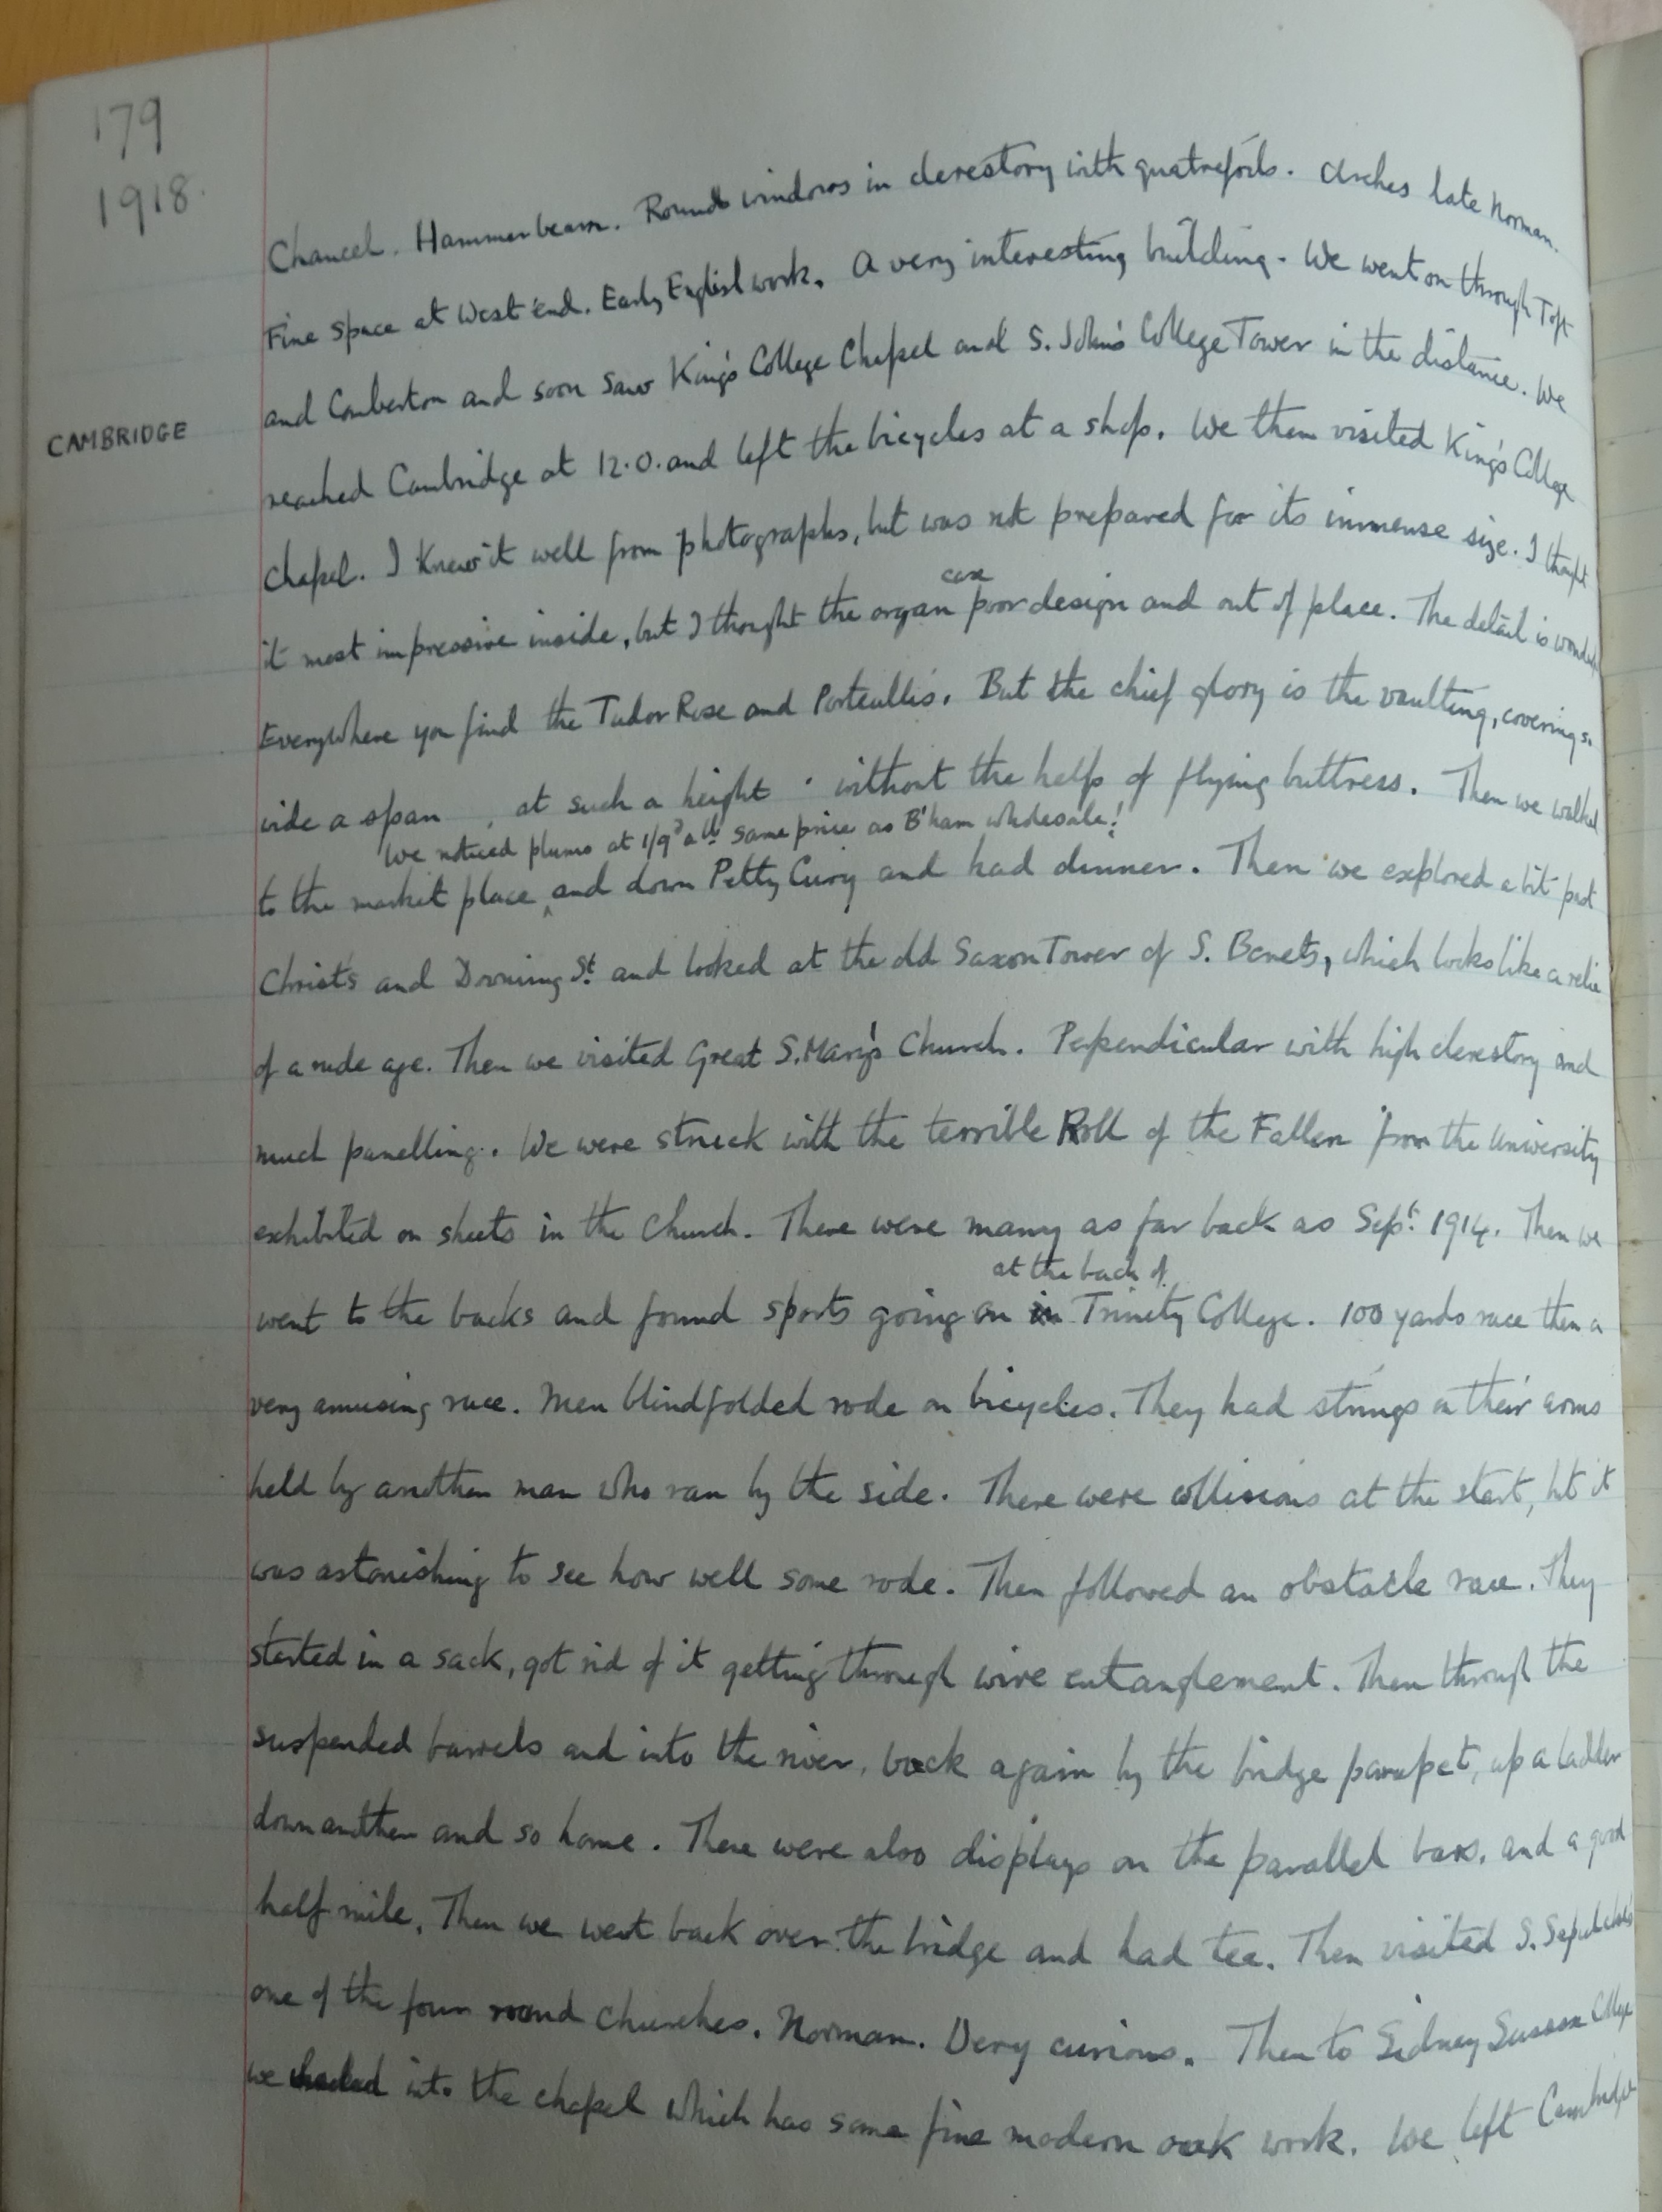 179
1918.
Chancel. Hammerbeam. Round windows in clerestory with quatrefoils. Arches late Norman.
Fine space at West end. Early English work. A very interesting building. We went on through Toft
and Comberton and soon saw King's College Chapel and S. John's College Tower in the distance. We
CAMBRIDGE
reached Cambridge at 12.0. and left the bicycles at a shop. We then visited King's College
Chapel. I knew it well from photographs, but was not prepared for its immense size. I thought
case
it most impressive inside, but I thought the organ poor design and out of place. The detail is
Everywhere you find the Tudor Rose and Portcullis. But the chief glory is the vaulting, covering so
wide a span, at such a height without the help of flying buttress. Then we walked
We noticed plums at 1/9d a lb same price as B'ham wholesale!
to the market place ^ and down Petty Cury and had dinner. Then we explored a bit past
Christ's and Downing St. and looked at the old Saxon Tower of S. Benets, which looks like a relic
of a rude age. Then we visited Great S. Mary's Church. Perpendicular with high clerestory and
much panelling. We were struck with the terrible Roll of the Fallen from the University
exhibited on sheets in the Church. There were many as far back as Sept. 1914. Then we
at the back of
went to the backs and found sports going on in Trinity College. 100 yards race then a
very amusing race. Men blindfolded rode on bicycles. They had strings on their arms
held by another man who ran by the side. There were collisions at the start, but it
was astonishing to see how well some rode. Then followed an obstacle race. They
started in a sack, got rid of it getting through wire entanglement. Then through the
suspended barrels and into the river, back again by the bridge parapet, up a ladder
down another and so home. There were also displays on the parallel bars, and a good
half mile. Then we went back over the bridge and had tea. Then visited S. Sepulchre's
one of the four round churches. Norman. Very curious. Then to Sidney Sussex College
we into the chapel which has some fine modern oak work. We left Cambridge